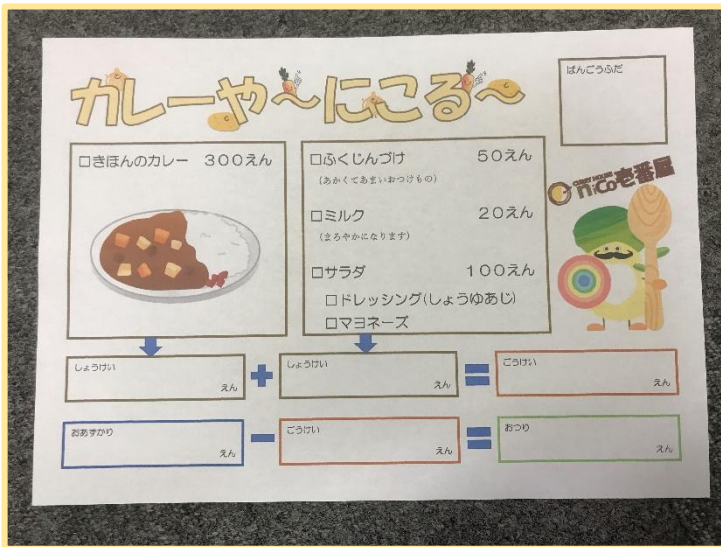 カレーや～にこる～
ばんごうふだ
□きほんのカレー 300えん
□ふくじんづけ 50えん
(あかくてあまいおつけもの)
□ミルク 20えん
(まろやかになります)
□サラダ 100えん
□ドレッシング(しょうゆあじ)
□マヨネーズ
CURRY HOUSE
niCo壱番屋
しょうけい
えん
+
しょうけい
えん
=
ごうけい
えん
おあずかり
えん
-
ごうけい
えん
=
おつり
えん